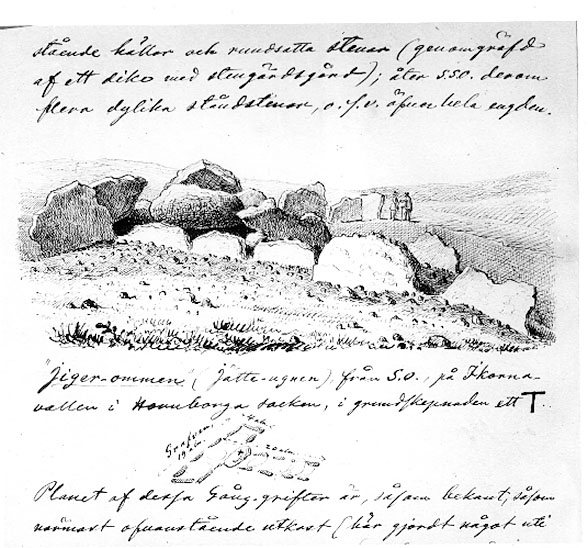 stående hällar och rundsatta stenar (genomgräfd
af ett dike med stengärdsgård); åter S.SO. derom
flera dylika ståndstenar, o.s.v. öfver hela engden.
"Jiger-ommen" (Jätte-ugnen), från S.O., på Ikorna-
vallen i Hornborga socken, i grundskepnaden ett T.
4 aln.
Grafrum
19 aln.
20 aln.
Planet af dessa Gång-grifter är, såsom bekant, såsom
närmast ofvanstående utkast (här gjordt något uti